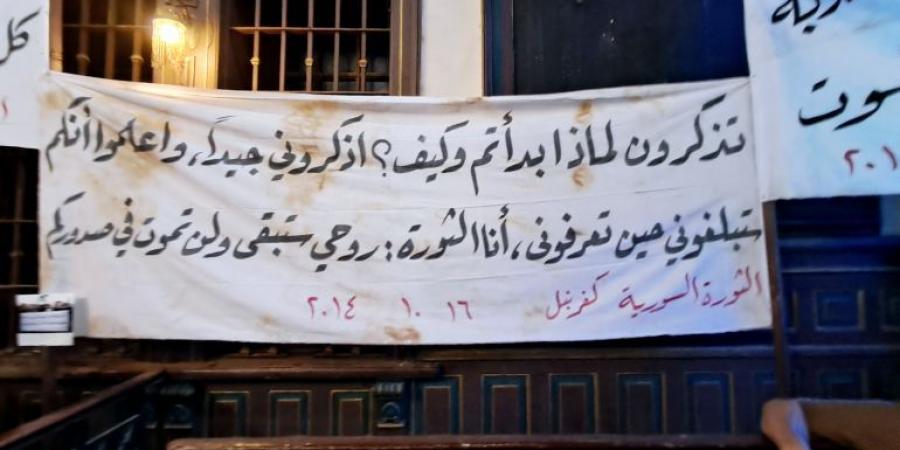 تذكرون لماذا بدأتم وكيف؟ اذكروني جيداً، واعلموا أنكم
ستبلغوني حين تعرفوني، أنا الثورة: روحي ستبقى ولن تموت في صدوركم
الثورة السورية كفرنبل ١٦ ١٠ ٢٠١٤
كل